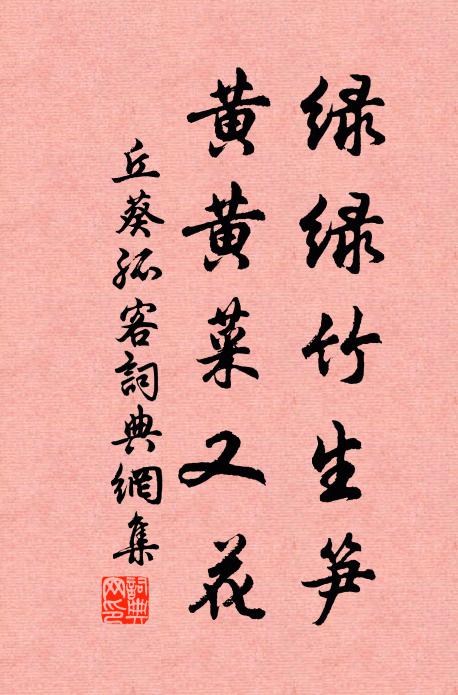 绿绿竹生笋
黄黄菜又花
丘葵孤客詞典網集
詞典網印